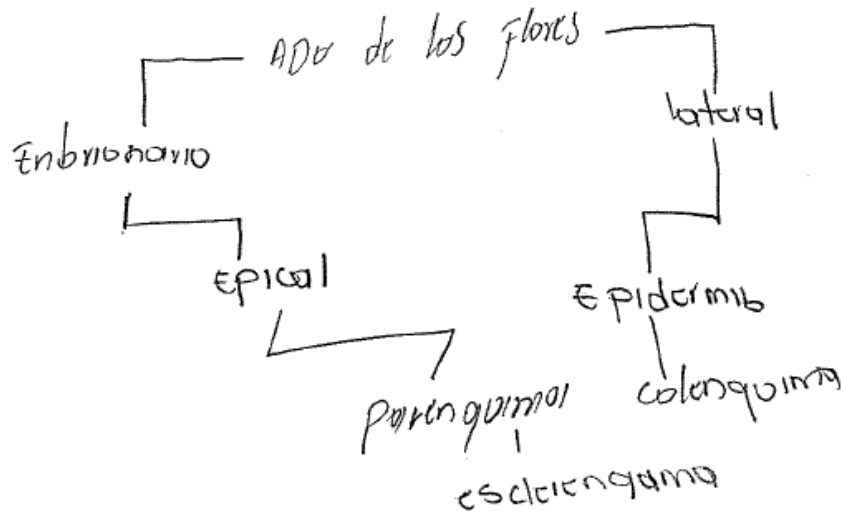 ADN de los Flores
Enbrionario
lateral
Epical
Epidermis
Parenquima
colenquima
esclerenquima